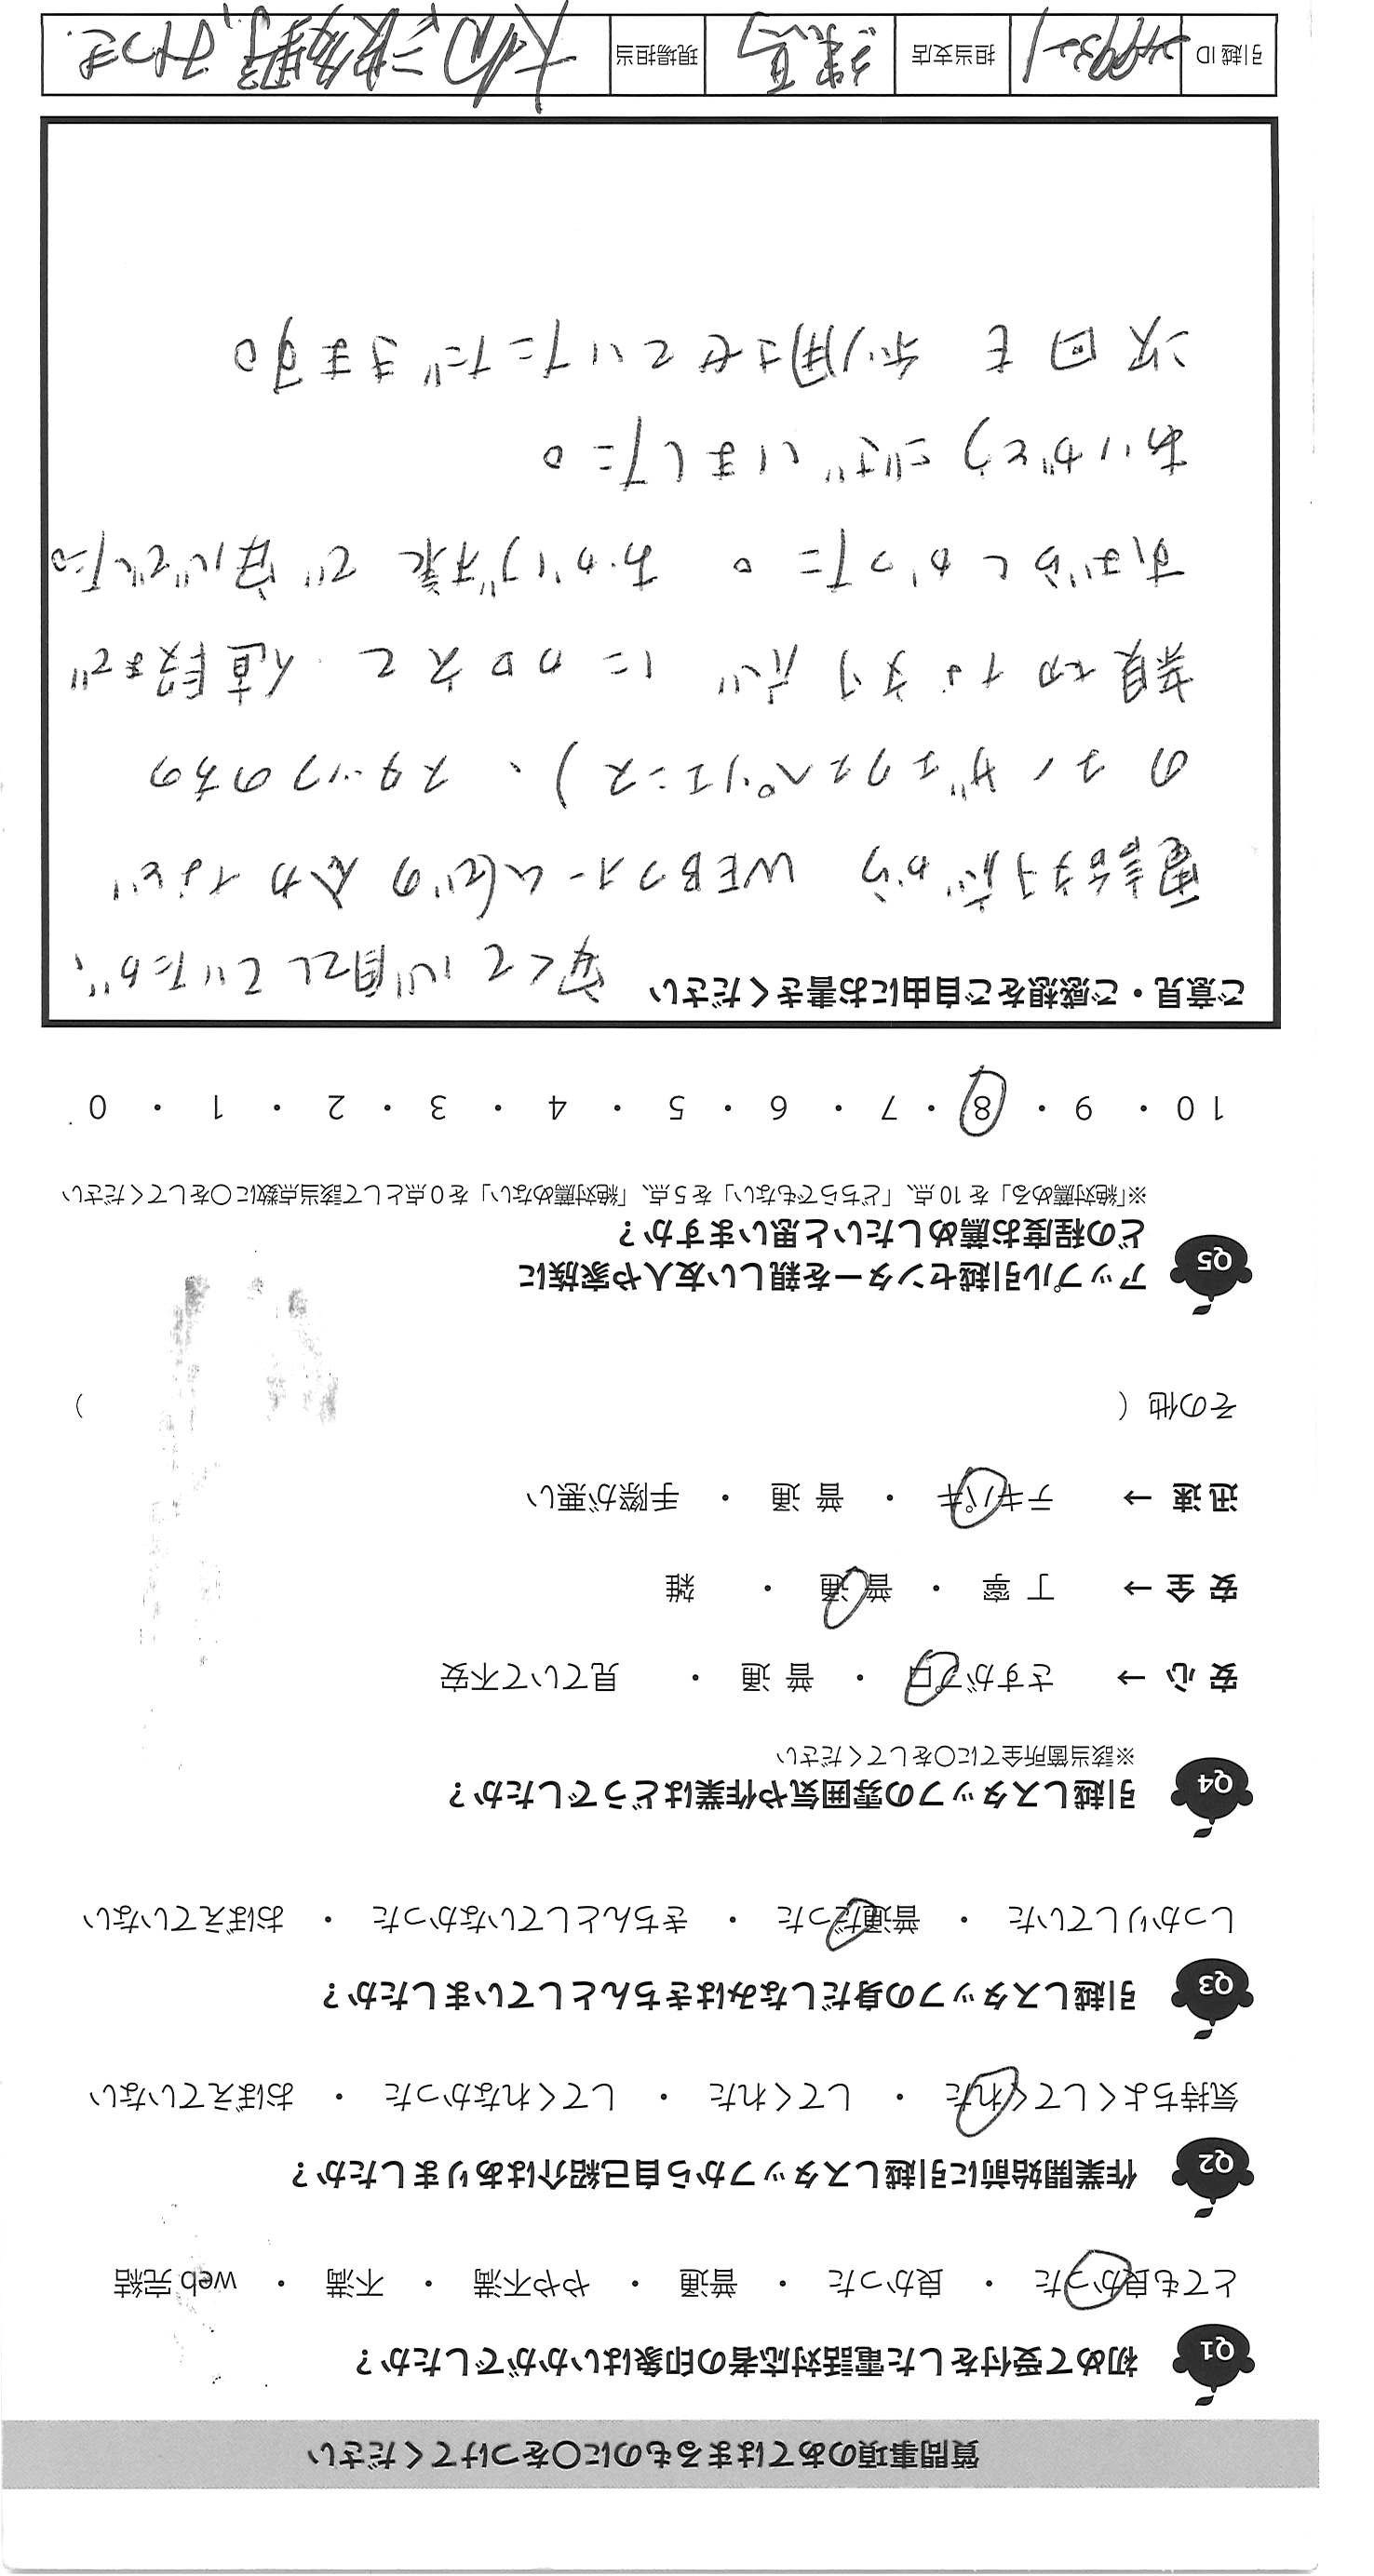 質問事項のあてはまるものに〇をつけてください
Q1 初めて受付をした電話対応者の印象はいかがでしたか？
とても良かった ・ 良かった ・ 普通 ・ やや不満 ・ 不満 ・ web 完結
Q2 作業開始前に引越しスタッフから自己紹介はありましたか？
気持ちよくしてくれた ・ してくれた ・ してくれなかった ・ おぼえていない
Q3 引越しスタッフの身だしなみはきちんとしていましたか？
しっかりしていた ・ 普通だった ・ きちんとしていなかった ・ おぼえていない
Q4 引越しスタッフの雰囲気や作業はどうでしたか？
※該当箇所全てに〇をしてください
安心 → さすがプロ ・ 普通 ・ 見ていて不安
安全 → 丁寧 ・ 普通 ・ 雑
迅速 → テキパキ ・ 普通 ・ 手際が悪い
その他（ ）
Q5 アップル引越センターを親しい友人や家族に
どの程度お薦めしたいと思いますか？
※「絶対薦める」を10点、「どちらでもない」を5点、「絶対薦めない」を0点として該当点数に〇をしてください
10 ・ 9 ・ 8 ・ 7 ・ 6 ・ 5 ・ 4 ・ 3 ・ 2 ・ 1 ・ 0
ご意見・ご感想をご自由にお書きください 安くて心配していたが、
電話対応から WEBフォーム(での入力など
のユーザエクスペリエンス)、スタッフの方の
親切な対応に加えて 値段まで
すばらしかった。ありがた
ありがとうございました。
次回も利用させていただきます。
引越ID 担当支店 練馬 現場担当 大畑、波多野、みつき